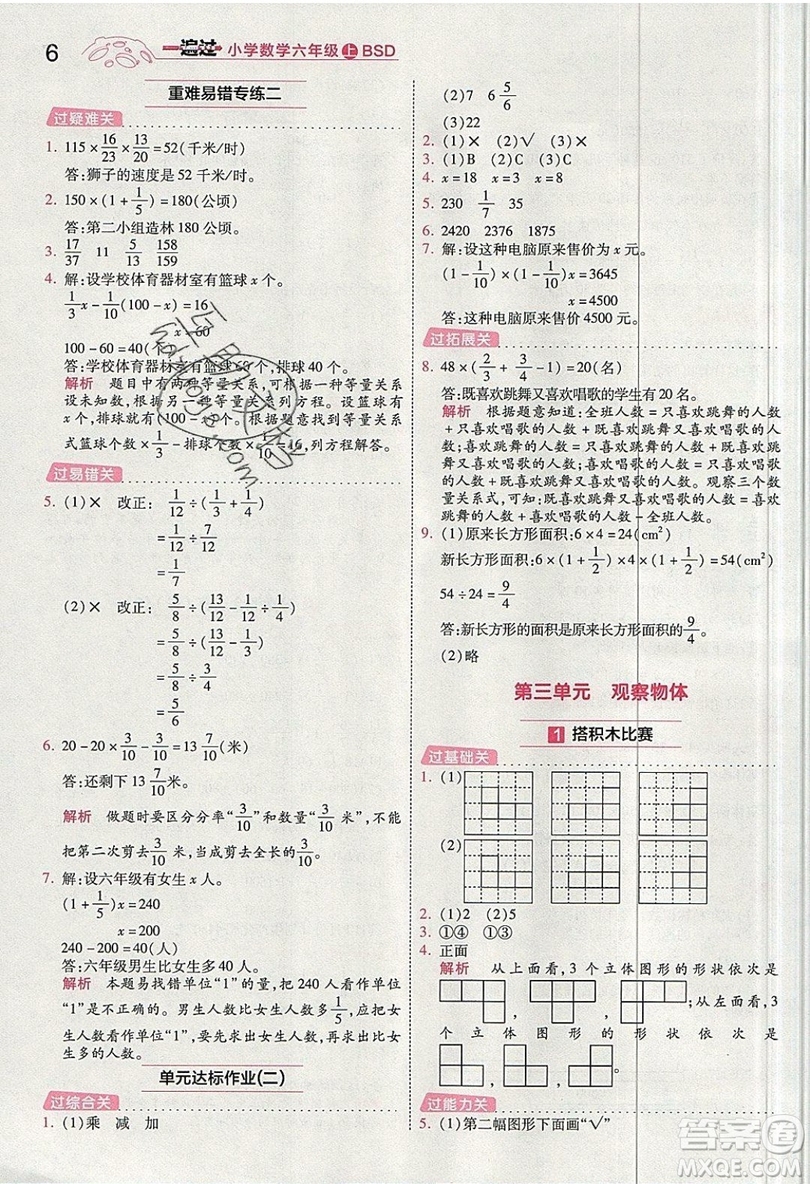 6
一遍过 小学数学六年级 上 BSD
重难易错专练二
过疑难关
1. 115×16/23×13/20=52(千米/时)
答:狮子的速度是 52 千米/时。
2. 150×(1+1/5)=180(公顷)
答:第二小组造林 180 公顷。
3. 17/37 11 5/13 158/159
4. 解:设学校体育器材室有篮球 x 个。
1/3x-1/10(100-x)=16
x=60
100-60=40(个)
答:学校体育器材室有篮球 60 个,排球 40 个。
解析 题目中有两种等量关系,可根据一种等量关系
设未知数,根据另一种等量关系列方程。设篮球有 x
个,排球就有(100-x)个。根据题意可找出等量关
系式篮球个数×1/3-排球个数×1/10=16,列方程解答。
过易错关
5. (1)× 改正: 1/12÷(1/3+1/4)
=1/12÷7/12
=1/7
(2)× 改正: 5/8÷(13/12-1/12÷1/4)
=5/8÷(13/12-4/12)
=5/8÷9/12
=5/6
6. 20-20×3/10-3/10=13 7/10(米)
答:还剩下 13 7/10 米。
解析 做题时要区分分率“3/10”和数量“3/10 米”,不能
把第二次剪去3/10米,当成剪去全长的3/10。
7. 解:设六年级有女生 x 人。
(1+1/5)x=240
x=200
240-200=40(人)
答:六年级男生比女生多 40 人。
解析 本题易找错单位“1”的量,把 240 人看作单位
“1”是不正确的。男生人数比女生人数多1/5,应把女
生人数看作单位“1”,要先求出女生人数,再求出男生比女生
多的人数。
单元达标作业(二)
过综合关
1. (1)乘 减 加
(2)7 6 5/6
(3)22
2. (1)× (2)√ (3)×
3. (1)B (2)C (3)B
4. x=18 x=3 x=8
5. 230 1/7 35
6. 2420 2376 1875
7. 解:设这种电脑原来售价为 x 元。
(1-1/10)×(1-1/10)×x=3645
x=4500
答:这种电脑原来的售价 4500 元。
过拓展关
8. 48×(2/3+3/4-1)=20(名)
答:既喜欢跳舞又喜欢唱歌的学生有 20 名。
解析 根据题意知道:全班人数=只喜欢跳舞的人数
+只喜欢唱歌的人数+既喜欢跳舞又喜欢唱歌的人
数,喜欢跳舞的人数=只喜欢跳舞的人数+既喜欢跳
舞又喜欢唱歌的人数,喜欢唱歌的人数=只喜欢唱歌
的人数+既喜欢跳舞又喜欢唱歌的人数。观察三个数
量关系式,可知:既喜欢跳舞又喜欢唱歌的人数=喜欢
跳舞的人数+喜欢唱歌的人数-全班人数。
9. (1)原来长方形面积:6×4=24(cm²)
新长方形面积:6×(1+1/2)×4×(1+1/2)=54(cm²)
54÷24=9/4
答:新长方形的面积是原来长方形面积的9/4。
(2)略
第三单元 观察物体
1 搭积木比赛
过基础关
1. (1)
(2)
2. (1)2 (2)5
3. ①④ ①③
4. 正面
解析 从上面看,3 个立体图形的形状依次是
;从左面看,3
个立体图形的形状依次是
过能力关
5. (1)第二幅图形下面画“√”
答案卷
MXQE.COM